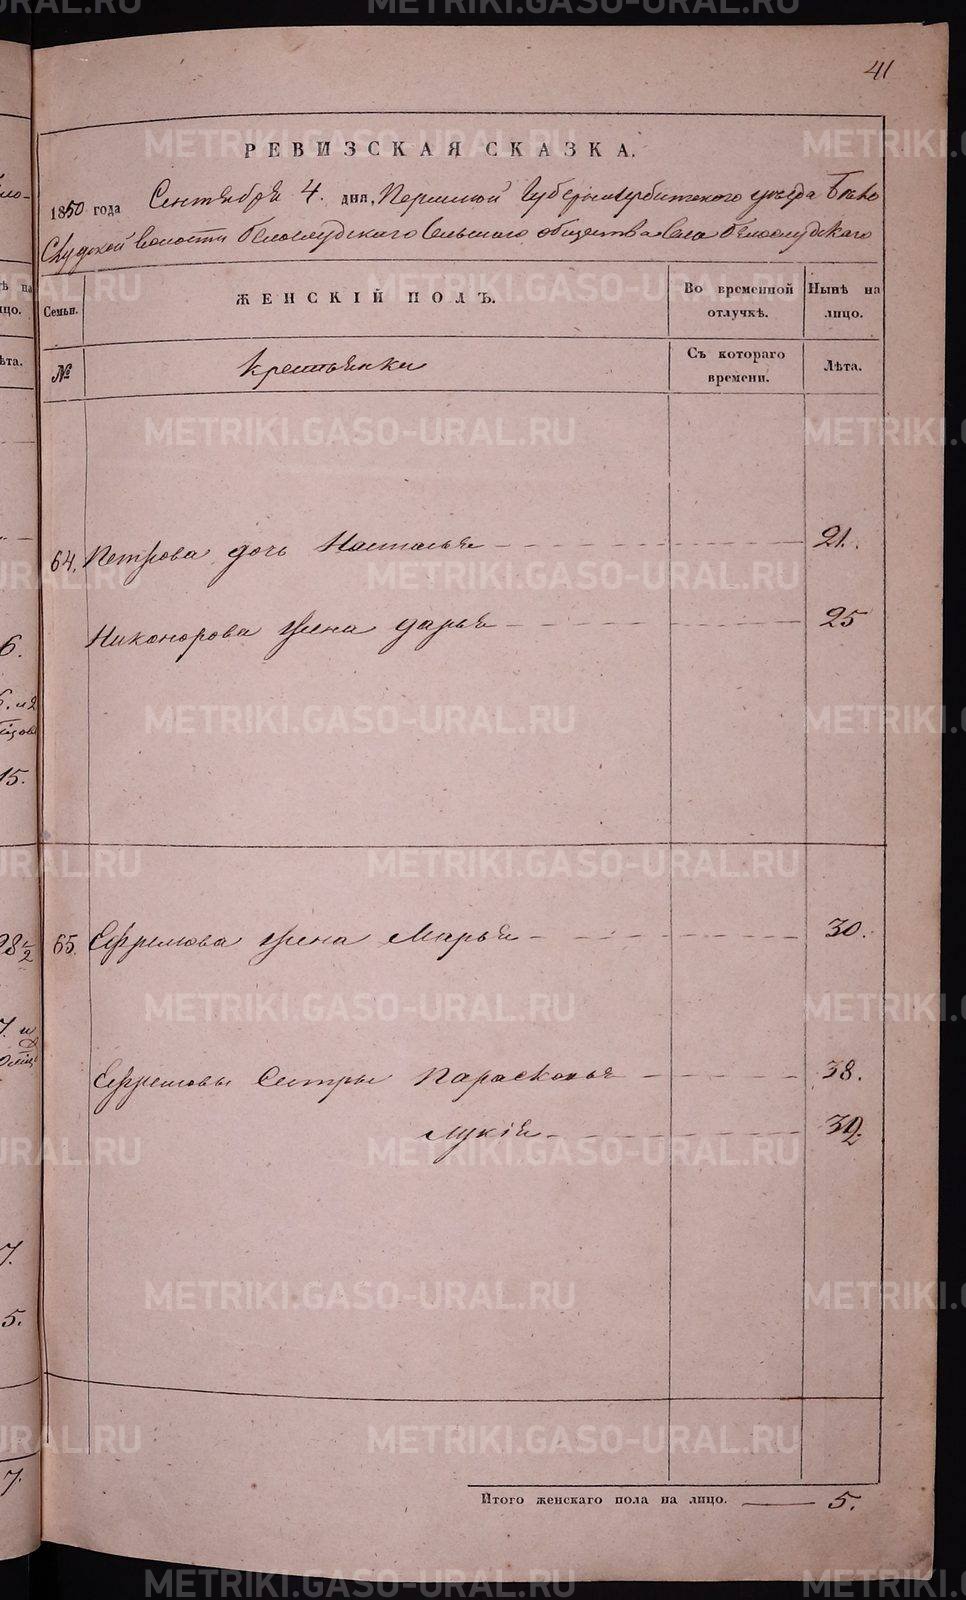 41
РЕВИЗСКАЯ СКАЗКА.
1850 года Сентября 4. дня, Пермской Губерніи Ирбитскаго уѣзда Бѣло
Слудской волости Белослудскаго Сельскаго общества села Белослудскаго
Семьи.
ЖЕНСКІЙ ПОЛЪ.
Во временной отлучкѣ.
Нынѣ на лицо.
№
Крестьянки
Съ котораго времени.
Лѣта.
64. Петрова дочь Настасья 21.
Никонорова жена дарья 25
65. Ефремова жена Марья 30.
Ефремовы Сестры Парасковья 38.
Лукія
Итого женскаго пола на лицо. 5.
METRIKI.GASO-URAL.RU